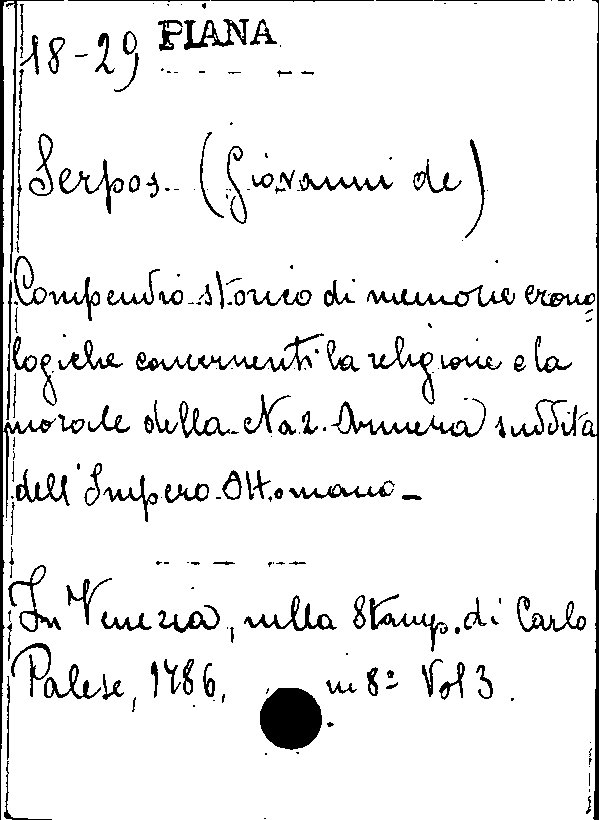 18-29 PIANA
Serpos. (Giovanni de)
Compendio storico di memorie crono=
logiche concernenti la religione e la
morale della Naz. Armena suddita
dell'Impero Ottomano_
In Venezia, nella Stamp. di Carlo
Palese, 1786, in 8º Vol 3.